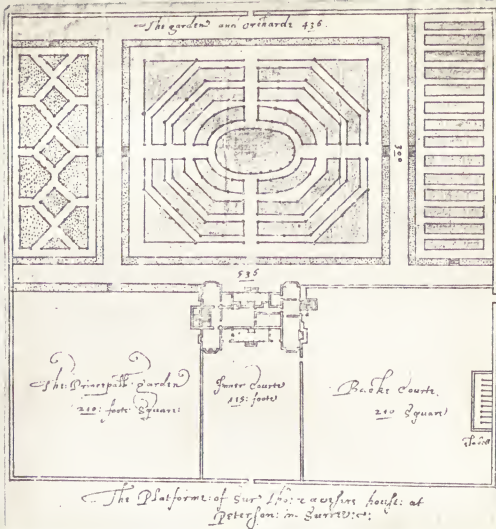 The garden and orcharde 436.
300
536
The: Principall garden
210: foote Square:
Inner Courte
115: foote
Backe Courte.
210 Square
The Platforme: of Sur Tho: house: at
Peterson: in Surrey: